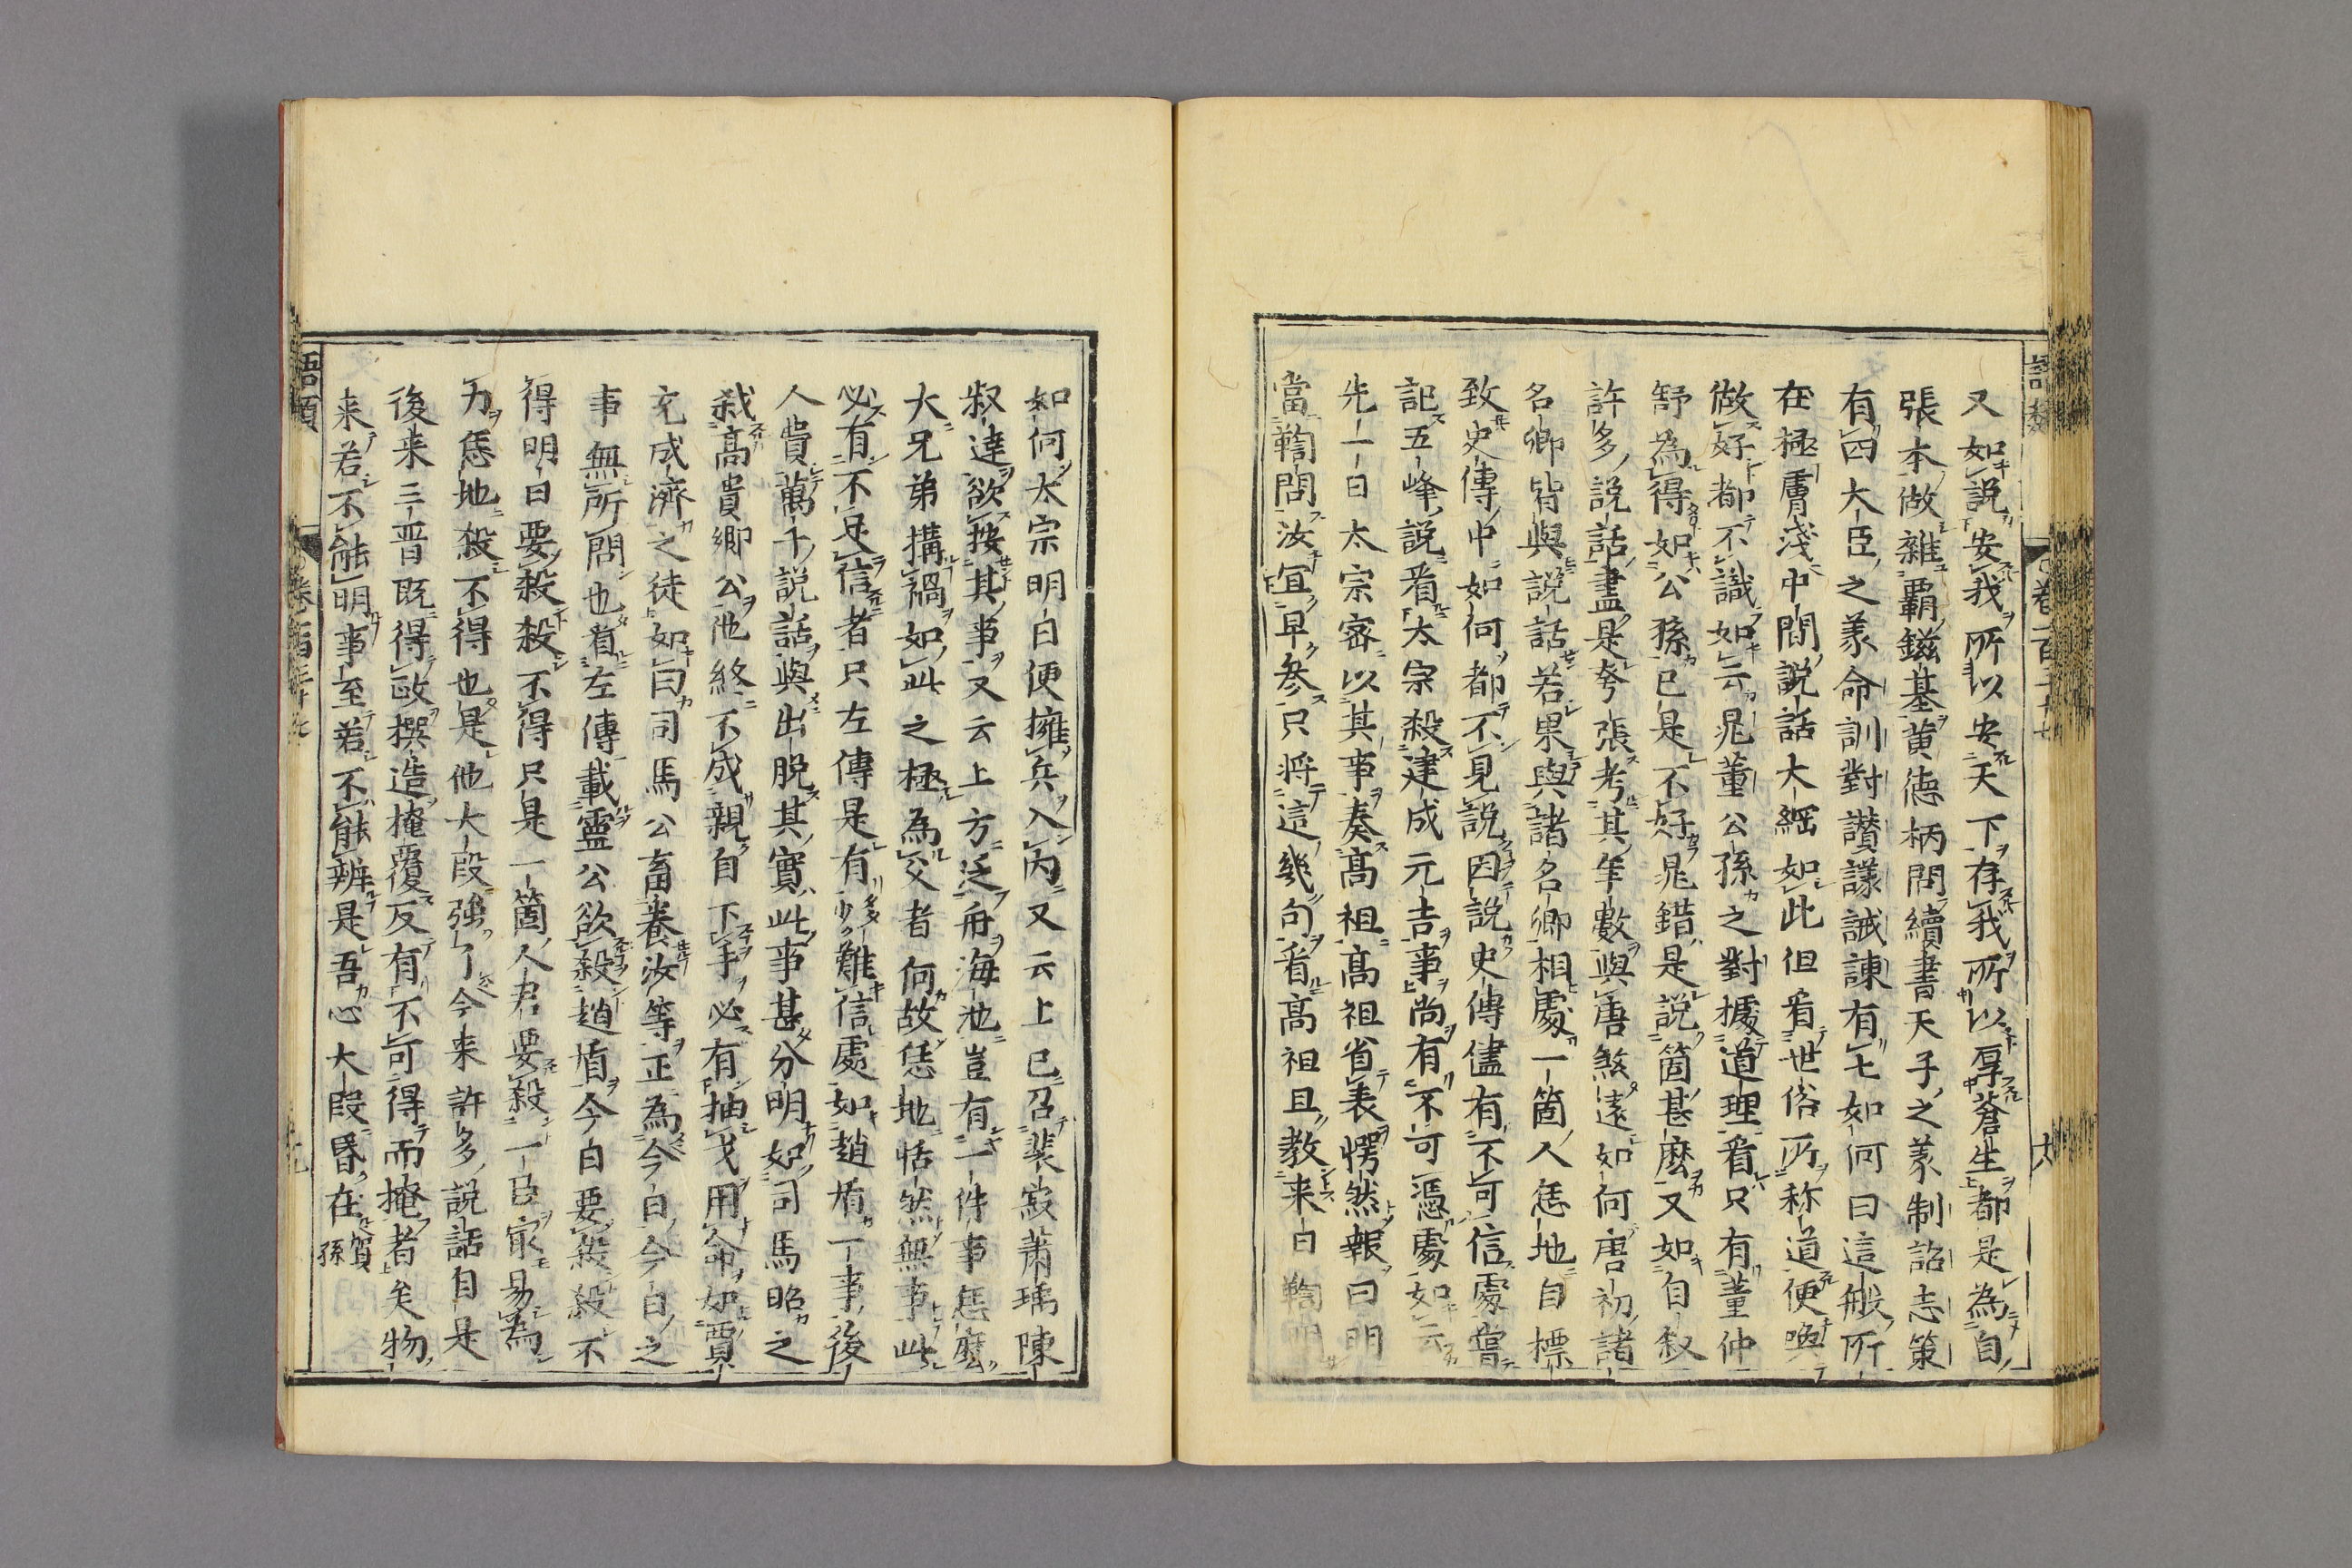 又如說安我所以安天下存我所以厚蒼生都是為自
張本做雜霸鎡基黄德柄問續書天子之義制詔志策
有四大臣之義命訓對讃議誡諫有七如何曰這般所
在極膚淺中間說話大綱如此但看世俗所称道便喚
做好都不識如云晁董公孫之對據道理看只有董仲
舒為得如公孫已是不好晁錯是說箇甚麽又如自叙
許多說話盡是夸張考其年數與唐煞遠如何唐初諸
名卿皆與說話若果與諸名卿相處一箇人恁地自標
致史傳中如何都不見說因說史傳儘有不可信處嘗
記五峰說看太宗殺建成元吉事尚有不可憑處如云
先一日太宗宻以其事奏高祖高祖省表愕然報曰明
當鞫問汝宜早参只将這幾句看高祖且教来日鞫問
如何太宗明日便擁兵入内又云上已召裴寂蕭瑀陳
叔達欲按其事又云上方泛舟海池豈有一件事恁麽
大兄弟搆禍如此之極為父者何故恁地恬然無事此
必有不足信者只左傳是有多少難信處如趙盾一事後
人費萬千說話與出脱其實此事甚分明如司馬昭之
弒高貴鄉公他終不成親自下手必有抽戈用命如賈
充成濟之徒如曰司馬公畜養汝等正為今日今日之
事無所問也看左傳載靈公欲殺趙盾今日要殺殺不
得明日要殺殺不得只是一箇人君要殺一臣㝡易為
力恁地殺不得也是他大段強了今来許多說話自是
後来三晋既得政撰造掩覆反有不可得而掩者矣物
来若不能明事至若不能辨是吾心大段昏在賀孫
語類